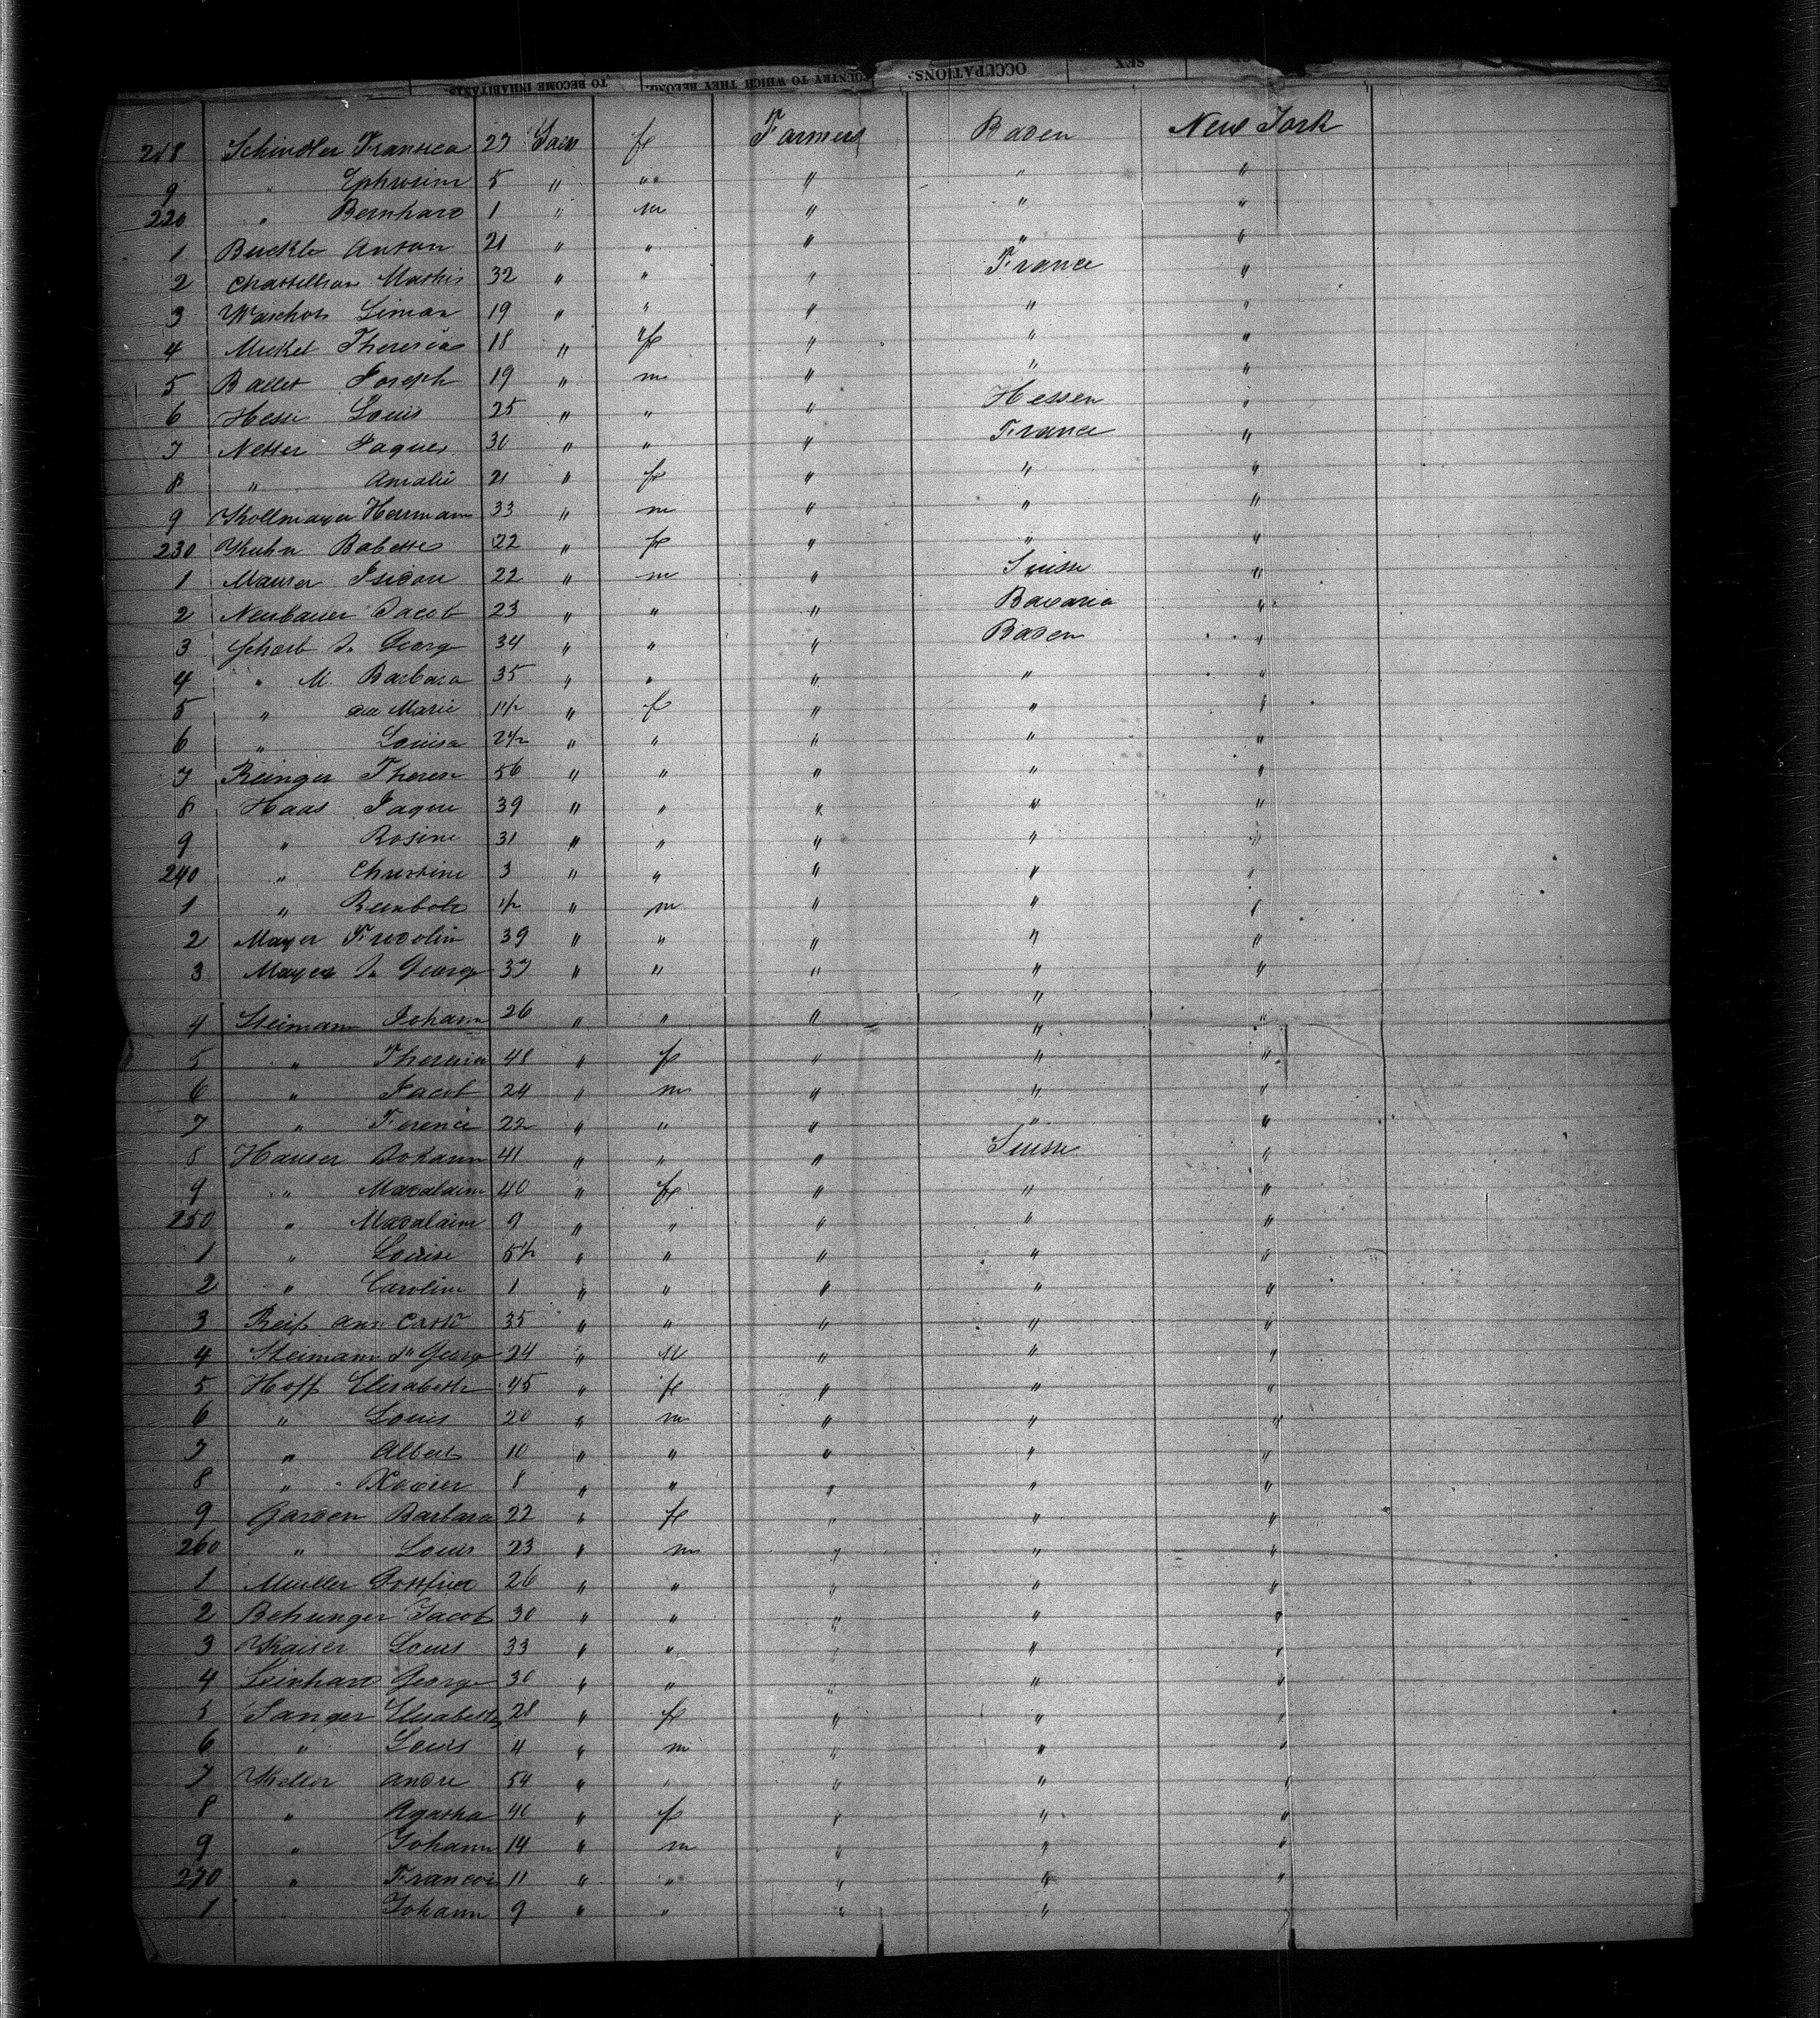 TO BECOME INHABITANTS. COUNTRY TO WHICH THEY BELONG. OCCUPATIONS. SEX
218 Schindler Fransica 27 f Farmers Baden New York
9 " Ephrosine 5 " " " " "
220 " Bernhard 1 " m " " "
1 Buckle Anton 21 " " " " "
2 Mathis 32 " " " France "
3 Simon 19 " " " " "
4 Mickel Theresia 18 " f " " "
5 Ballet Joseph 19 " m " " "
6 Hesse Louis 25 " " " Hessen "
7 Netter Jaques 30 " " " France "
8 " Amalie 21 " f " " "
9 Kollmayer Herrmann 33 " m " " "
230 Kuhn Babette 22 " f " " "
1 Maurer Isidou 22 " m " Suisse "
2 Neubauer Jacob 23 " " " Bavaria "
3 Georg 34 " " " Baden "
4 " M. Barbara 35 " " " " "
5 " Marie 1 1/2 " f " " "
6 " Louisa 2 1/2 " " " " "
7 Reinger Therese 56 " " " " "
8 Haas Jaque 39 " " " " "
9 " Rosine 31 " " " " "
240 " Christine 3 " " " " "
1 " 1/2 " m " " "
2 Mayer Fridolin 39 " " " " "
3 Mayer Jn George 37 " " " " "
4 Steimann Johann 26 " " " " "
5 " Theresia 48 " f " " "
6 " Jacob 24 " m " " "
7 " 22 " " " " "
8 Hauser Johann 41 " " " Suisse "
9 " Madalaine 40 " f " " "
250 " Madalaine 9 " " " " "
1 " Louise 5 1/2 " " " " "
2 " Caroline 1 " " " " "
3 Reiß 35 " " " " "
4 Steimann Jn Georg 24 " M " " "
5 Hoff Elisabeth 45 " f " " "
6 " Louis 20 " m " " "
7 " Albert 10 " " " " "
8 " Xavier 8 " " " " "
9 Garden Barbara 22 " f " " "
260 " Louis 23 " m " " "
1 Mueller Gottfried 26 " " " " "
2 Behringer Jacob 30 " " " " "
3 Kaiser Louis 33 " " " " "
4 Leinhard George 30 " " " " "
5 Sanger Elisabeth 28 " f " " "
6 " Louis 4 " m " " "
7 Keller Andre 54 " " " " "
8 " Agatha 40 " f " " "
9 " Johann 14 " m " " "
270 " Francois 11 " " " " "
1 " Johann 9 " " " "